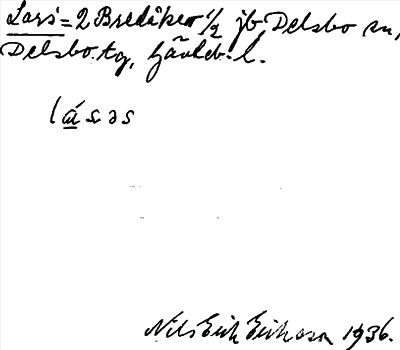 Lars = 2 Bredåker 1/2 jb, Delsbo sn,
Delsbo tg, Gävleb. l.
lásəs
Nils Erik Eriksson 1936.